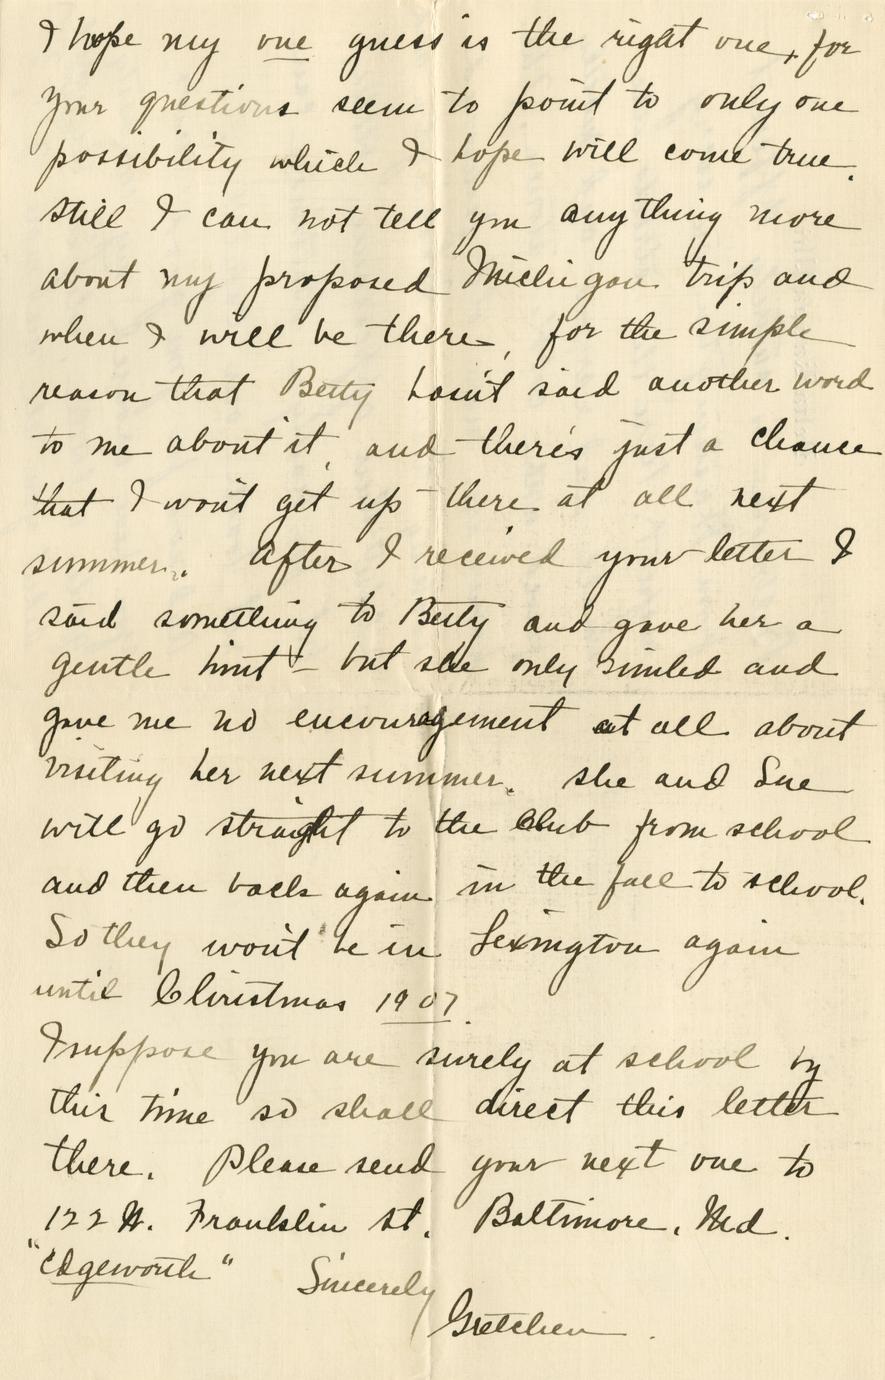 I hope my one guess is the right one, for
your questions seem to point to only one
possibility which I hope will come true.
Still I can not tell you anything more
about my proposed Michigan trip and
when I will be there, for the simple
reason that Betty hasn't said another word
to me about it, and there's just a chance
that I won't get up there at all next
summer. After I received your letter I
said something to Betty and gave her a
gentle hint – but she only smiled and
gave me no encouragement at all about
visiting her next summer. She and Sue
will go straight to the Club from school
and then back again in the fall to school.
So they won't be in Lexington again
until Christmas 1907.
I suppose you are surely at school by
this time so shall direct this letter
there. Please send your next one to
122 W. Franklin St. Baltimore, Md.
"Edgeworth" Sincerely
Gretchen.